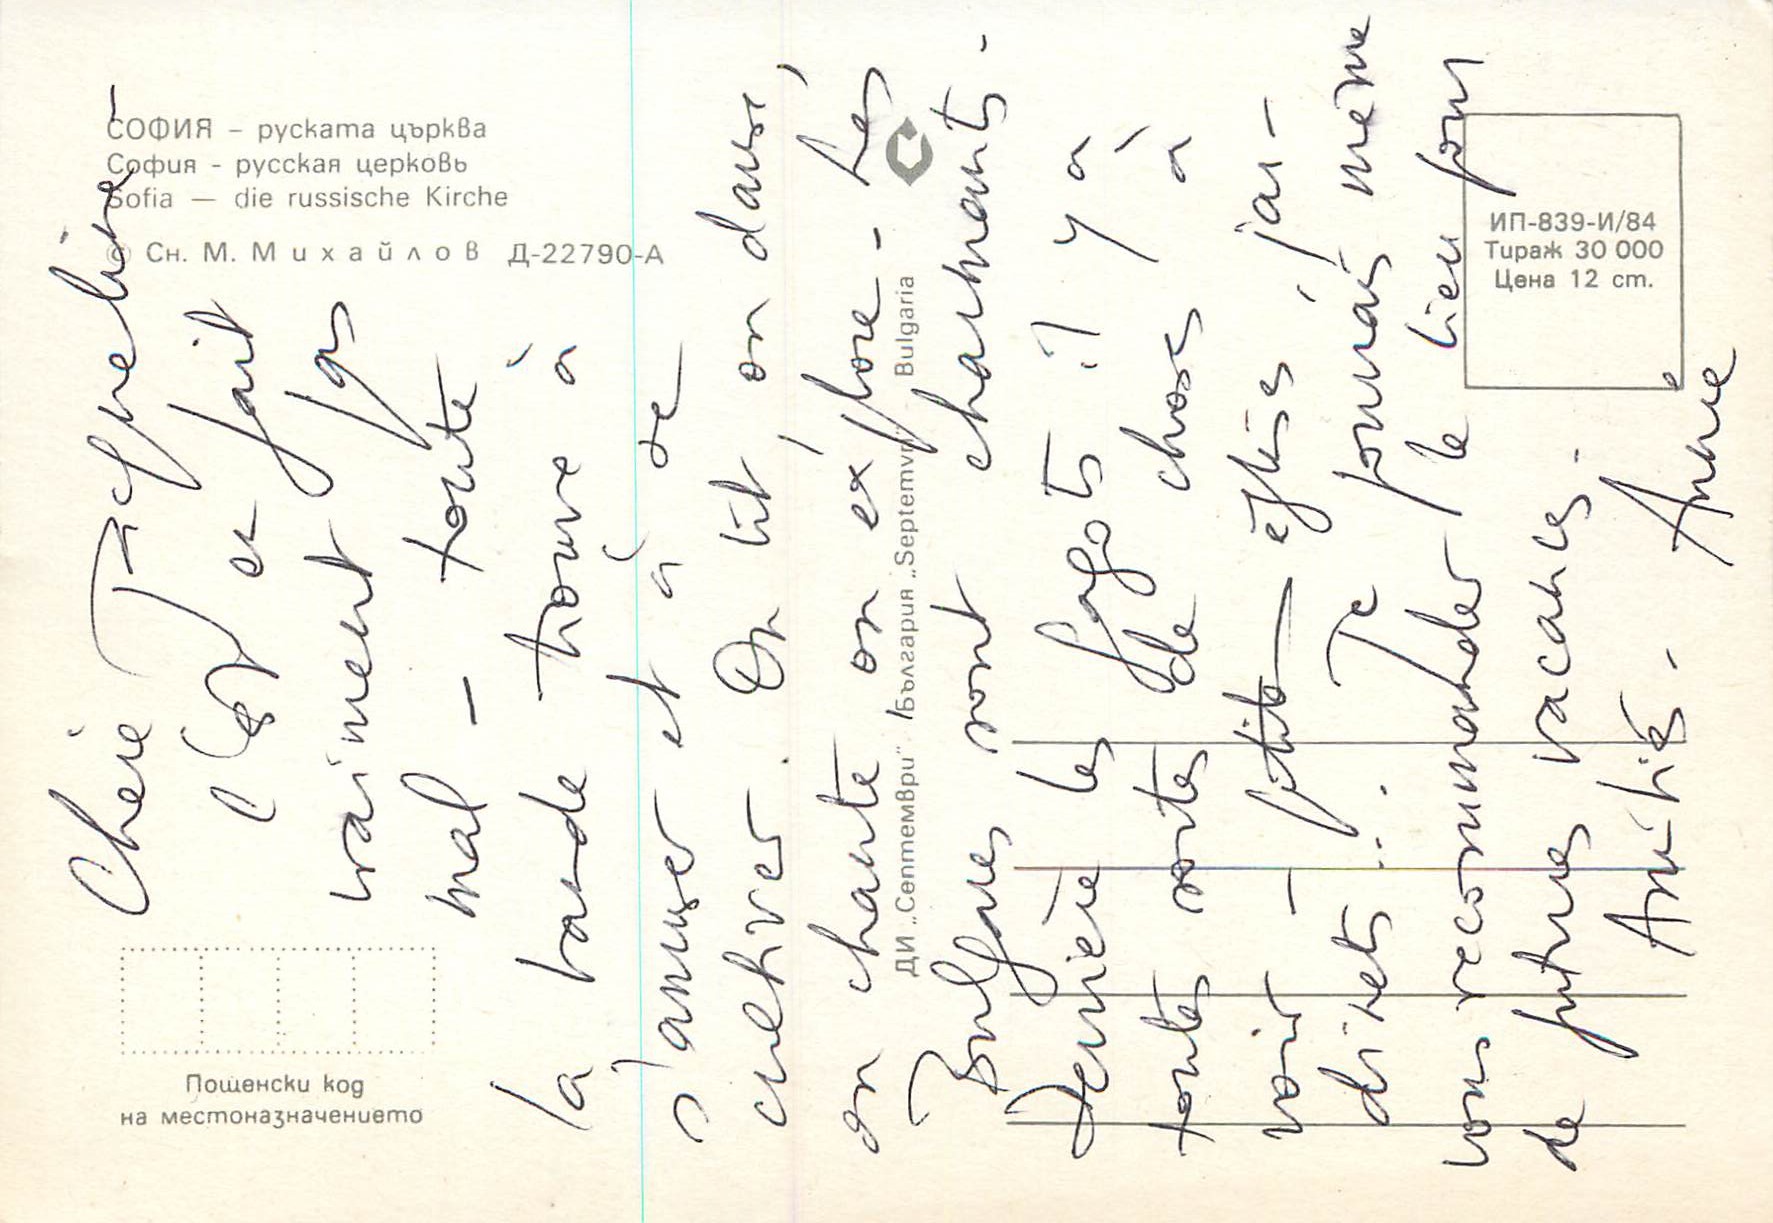 СОФИЯ – руската църква
София - русская церковь
Sofia — die russische Kirche
© Сн. М. Михайлов Д-22790-А
Пощенски код
на местоназначението
ДИ „Септември" · България „Septemvri" Bulgaria
ИП-839-И/84
Тираж 30 000
Цена 12 ст.
Chère Jacqueline -
C'est en fait
vraiment pas
mal - toute
la bande trouve à
s'amuser et à se
cultiver. On lit on danse,
on chante on explore - Les
Bulgares sont charmants -
Derrière les fagots il y a
toutes sortes de choses à
voir - petites églises, jar-
dinets... Je pourrais même
vous recommander le lieu pour
de futures vacances -
Amitiés - Anne